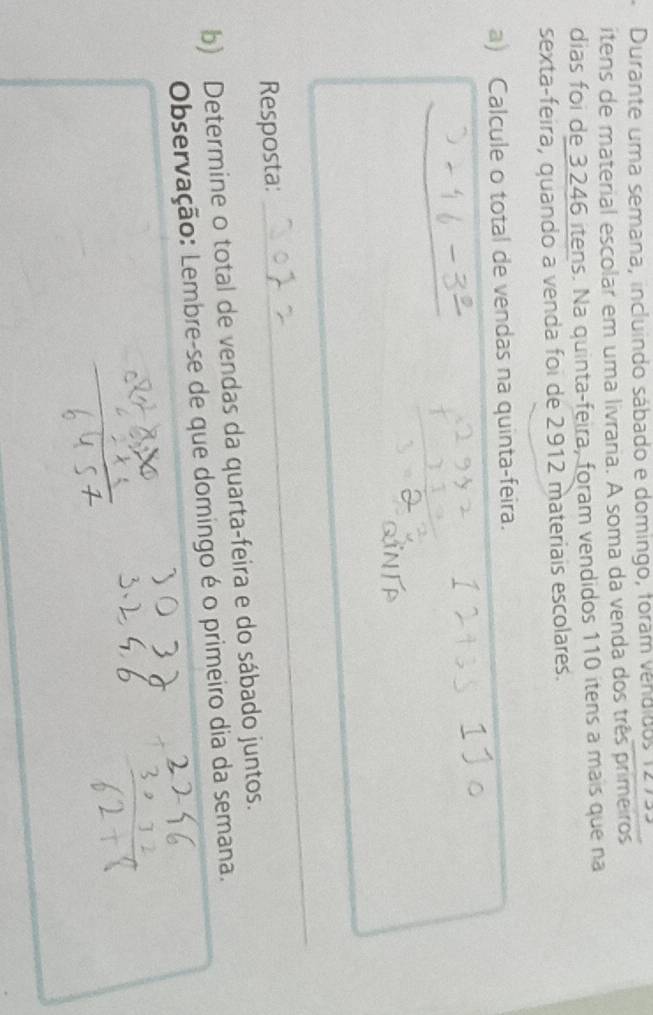 Durante uma semana, incluindo sábado e domingo, foram vendidos 12 735
itens de material escolar em uma livraria. A soma da venda dos três primeiros
dias foi de 3 246 itens. Na quinta-feira, foram vendidos 110 itens a mais que na
sexta-feira, quando a venda foi de 2 912 materiais escolares.
a) Calcule o total de vendas na quinta-feira.
110
QINTA
Resposta:
b) Determine o total de vendas da quarta-feira e do sábado juntos.
Observação: Lembre-se de que domingo é o primeiro dia da semana.
3032
3.246
6457